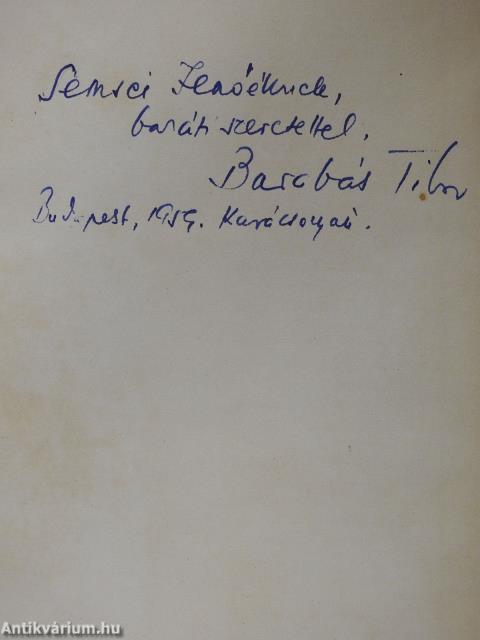 Semsei Jenőéknek,
baráti szeretettel,
Barabás Tibor
Budapest, 1959. Karácsonyán.
Antikvárium.hu